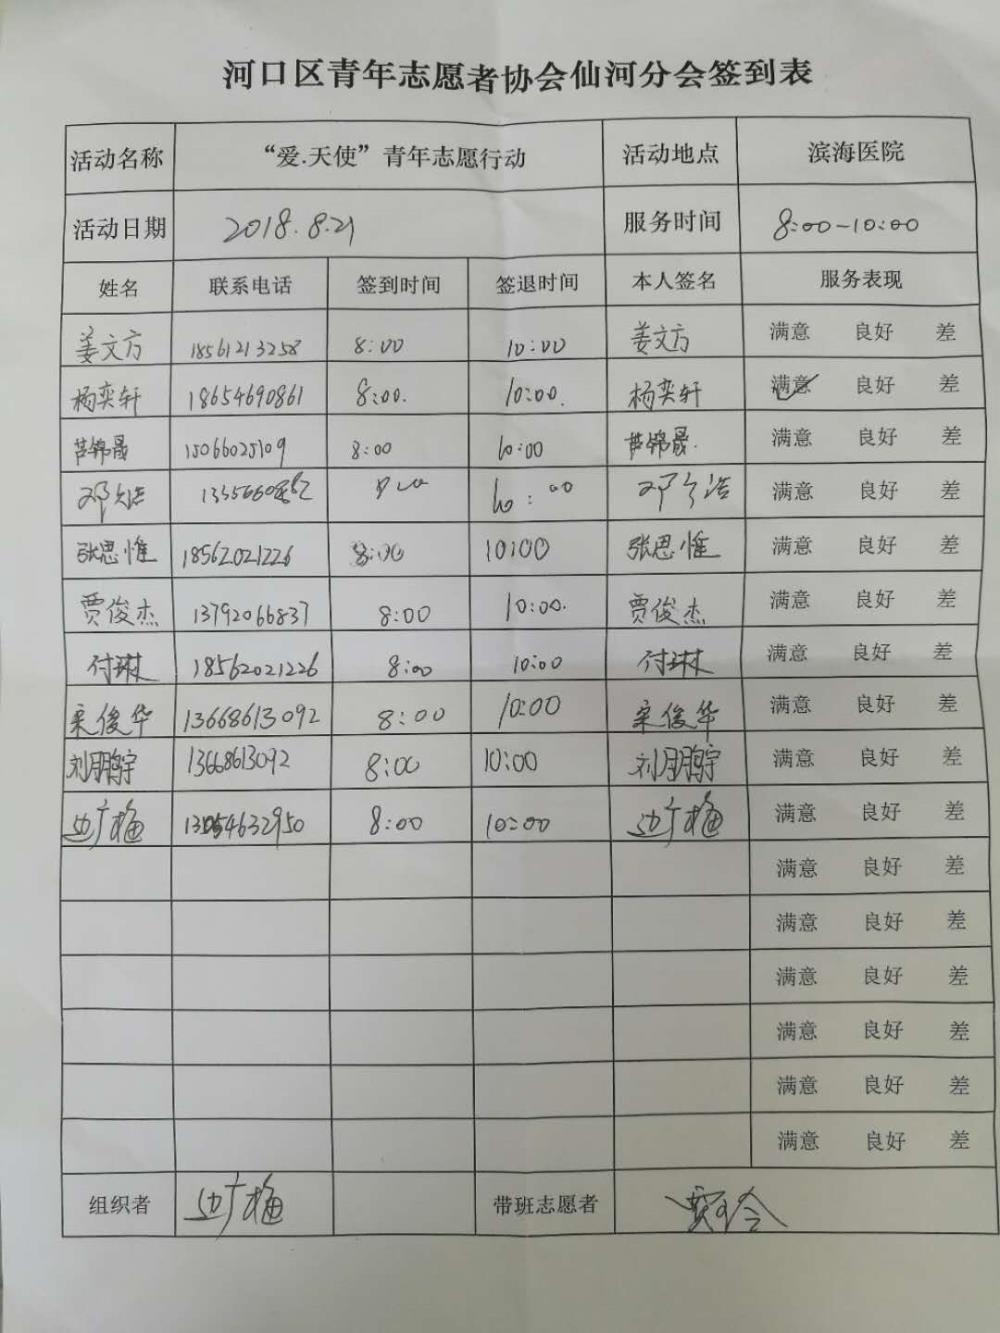 河口区青年志愿者协会仙河分会签到表
活动名称 “爱.天使”青年志愿行动 活动地点 滨海医院
活动日期 2018.8.21 服务时间 8:00-10:00
姓名 联系电话 签到时间 签退时间 本人签名 服务表现
姜文方 18561213258 8:00 10:00 姜文方 满意 良好 差
杨奕轩 18654690861 8:00. 10:00. 杨奕轩 满意 良好 差
芦锦晟 15066025109 8:00 10:00 芦锦晟. 满意 良好 差
邓 10:00 邓 满意 良好 差
张思惟 18562021226 8:00 10:00 张思惟 满意 良好 差
贾俊杰 13792066837 8:00 10:00. 贾俊杰 满意 良好 差
付琳 18562021226 8:00 10:00 付琳 满意 良好 差
宋俊华 13668613092 8:00 10:00 宋俊华 满意 良好 差
刘鹏宇 13668613092 8:00 10:00 刘鹏宇 满意 良好 差
边广梅 13054632950 8:00 10:00 边广梅 满意 良好 差
满意 良好 差
满意 良好 差
满意 良好 差
满意 良好 差
满意 良好 差
满意 良好 差
组织者 边广梅 带班志愿者